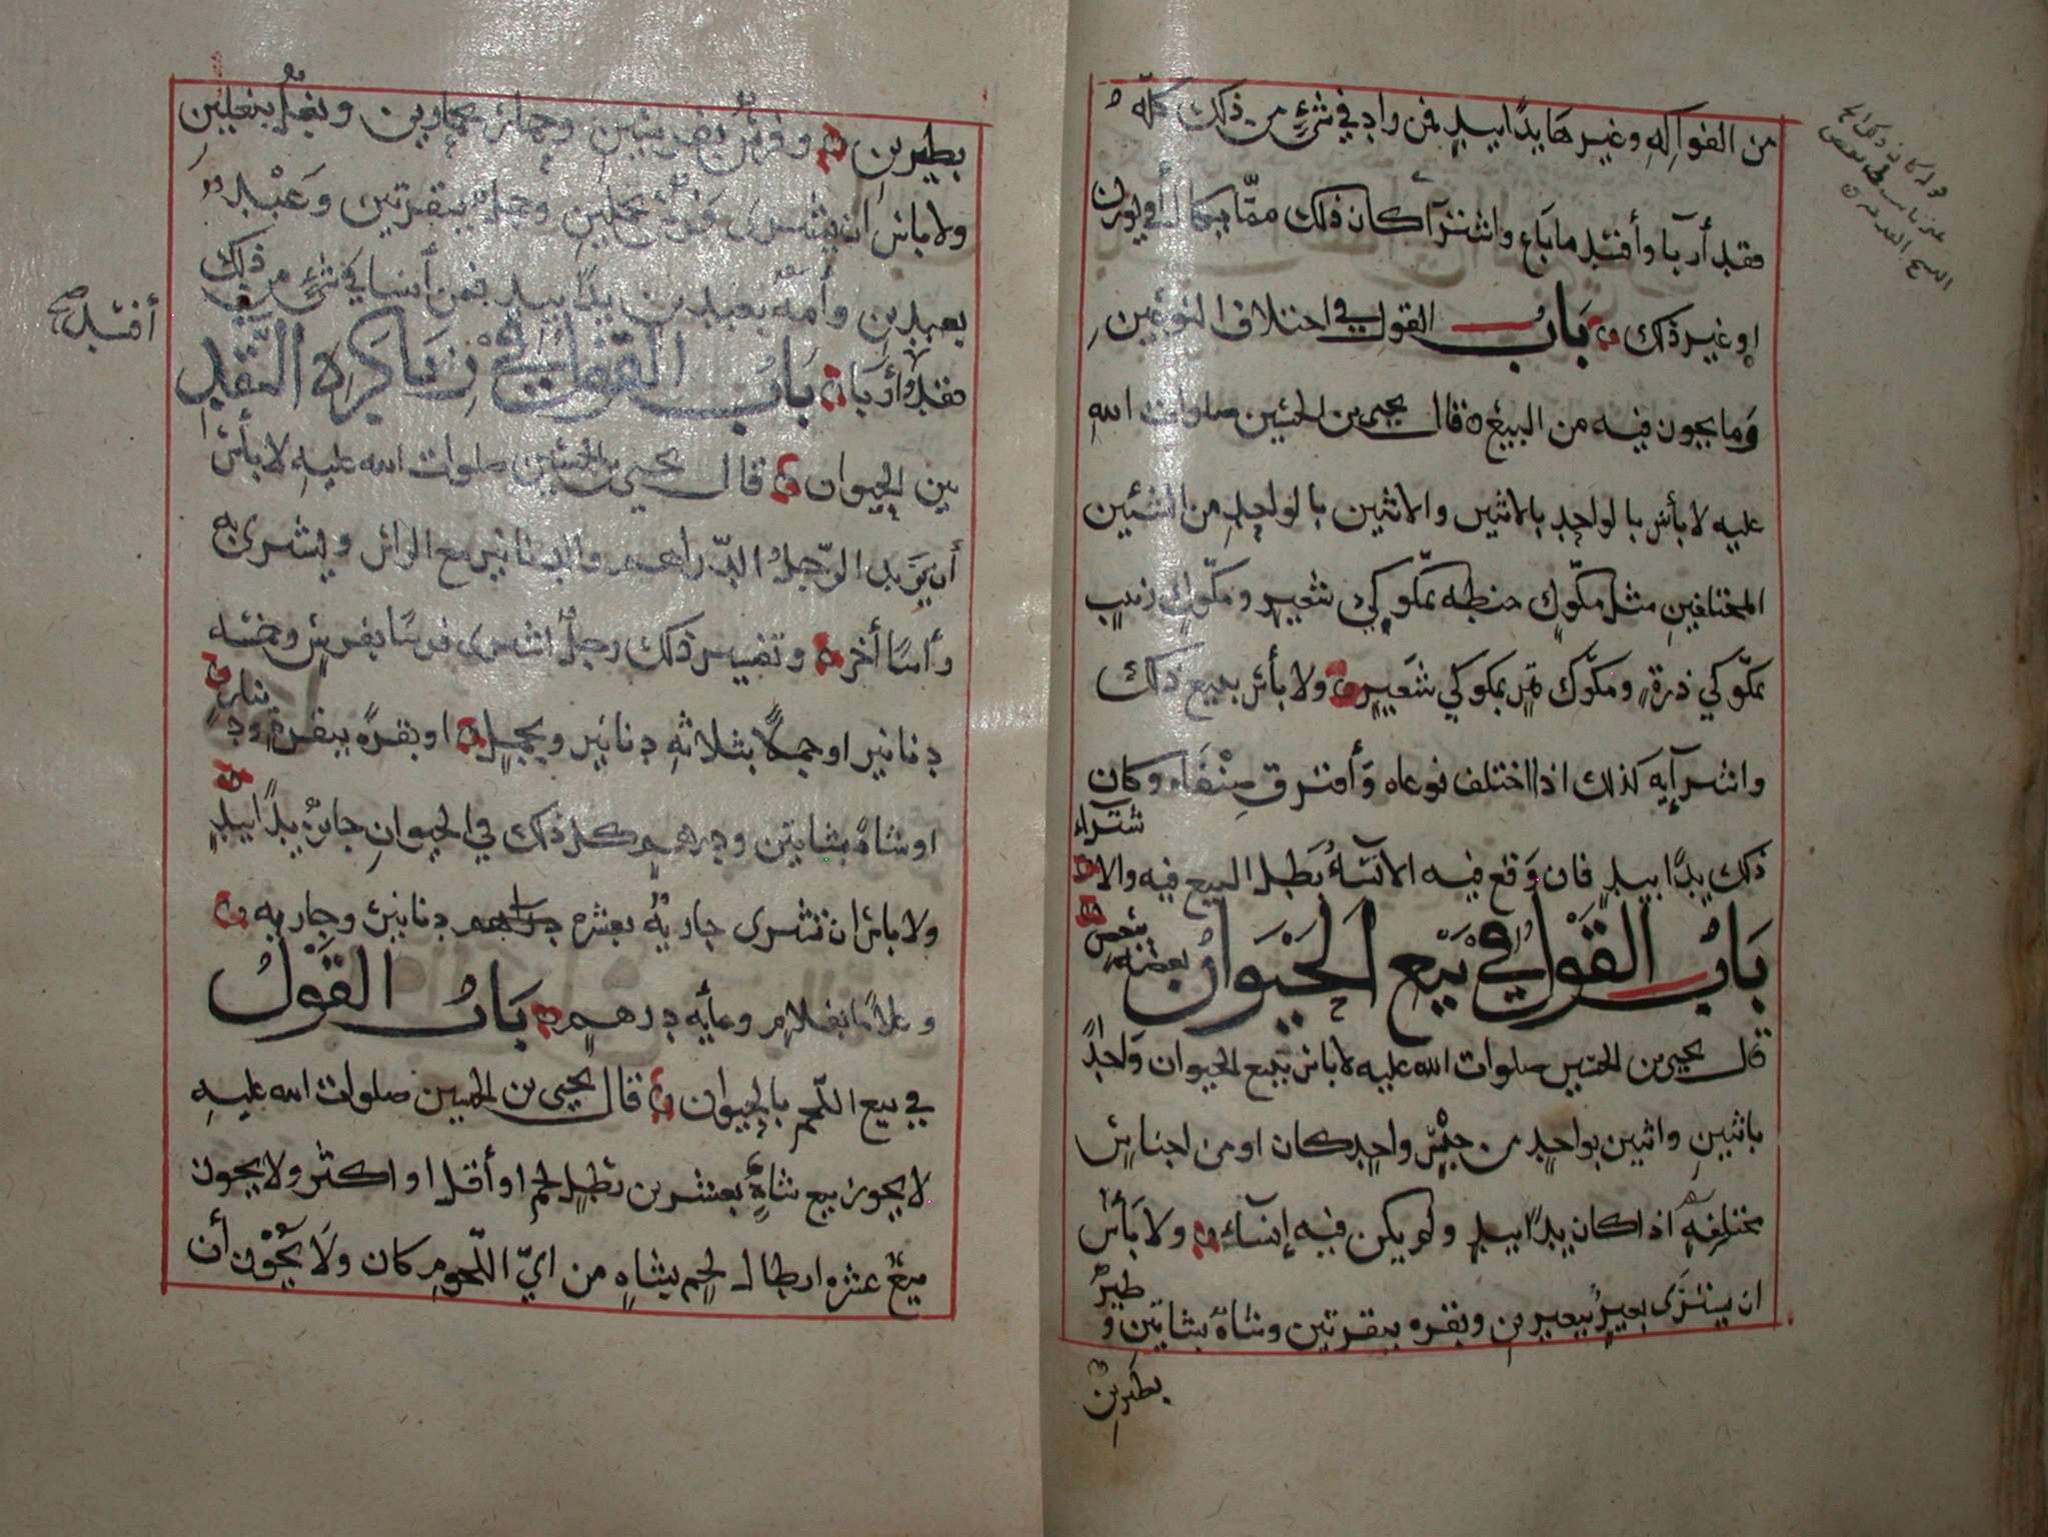 من الفواكه وغيرها يدًا بيدٍ فمن زاد في شيءٍ من ذلك كله
فقد أربا وأفسد ما باع واشترا كان ذلك مما يكال أو يوزن
او غير ذلك باب القول في اختلاف النوعين
وما يجوز فيه من البيع قال يحيى بن الحسين صلوات الله
عليه لا بأس بالواحد بالاثنين والاثنين بالواحدِ من الشيئين
المختلفين مثل مكّوكٍ حنطه بمكّوكي شعيرٍ ومكّوك زبيبٍ
بمكّوكي ذرةٍ ومكّوك تمرٍ بمكوكي شعيرٍ ولا بأس ببيع ذلك
واشرآيه كذلك اذا اختلف نوعاه وأفترق صنفاه وكان
ذلك يدًا بيدٍ فان وقع فيه الانساءُ بطل البيع فيه والا
شتراء
باب القول في بيع الحيوان بعضه ببعض
قال يحيى بن الحسين صلوات الله عليه لا بأس ببيع الحيوان واحدًا
باثنين واثنين بواحدٍ من جنسٍ واحدٍ كان او من اجناسٍ
مختلفهٍ اذا كان يدًا بيدٍ ولم يكن فيه إنسآء ولا بأس
ان يشترى بعيرٌ ببعيرين وبقره ببقرتين وشاهٌ بشاتين و طيرٌ
بطيرين
بطيرين وفرسٌ بفرسين وحمارٌ بحمارين وبغلٌ ببغلين
ولا باس ان يشترى فرسٌ بجملين وجملٌ ببقرتين وعبدٌ
بعبدين وأمهٌ بعبدين يدًا بيدٍ فمن أنسا في شيءٍ من ذلك
أفسد صح
فقد أربا باب القول في زيادة النقد
بين الحيوان قال يحيى بن الحسين صلوات الله عليه لا بأس
أن يزيد الرّجلُ الدّراهم والدنانير مع الراس ويشرى به
رأسًا أخر وتفسير ذلك رجلٌ اشترى فرسًا بفرسٍ وخمسه
دنانير او جملاً بثلاثهِ دنانير وبجملٍ او بقرهً ببقرهٍ ودينارٍ
او شاهً بشاتين ودرهمٍ كل ذلك في الحيوانِ جائزٌ يدًا بيدٍ
ولا باس ان تشرى جاريهٌ بعشره دراهم دنانير وجاريه
وغلامًا بغلام ومايه درهم باب القول
في بيع اللّحم بالحيوان قال يحيى بن الحسين صلوات الله عليه
لا يجوز بيع شاهٍ بعشرين رطل لحم او أقل او اكثر ولا يجوز
بيع عشره ارطال لحم بشاهٍ من ايّ اللّحوم كان ولا يجوز أن